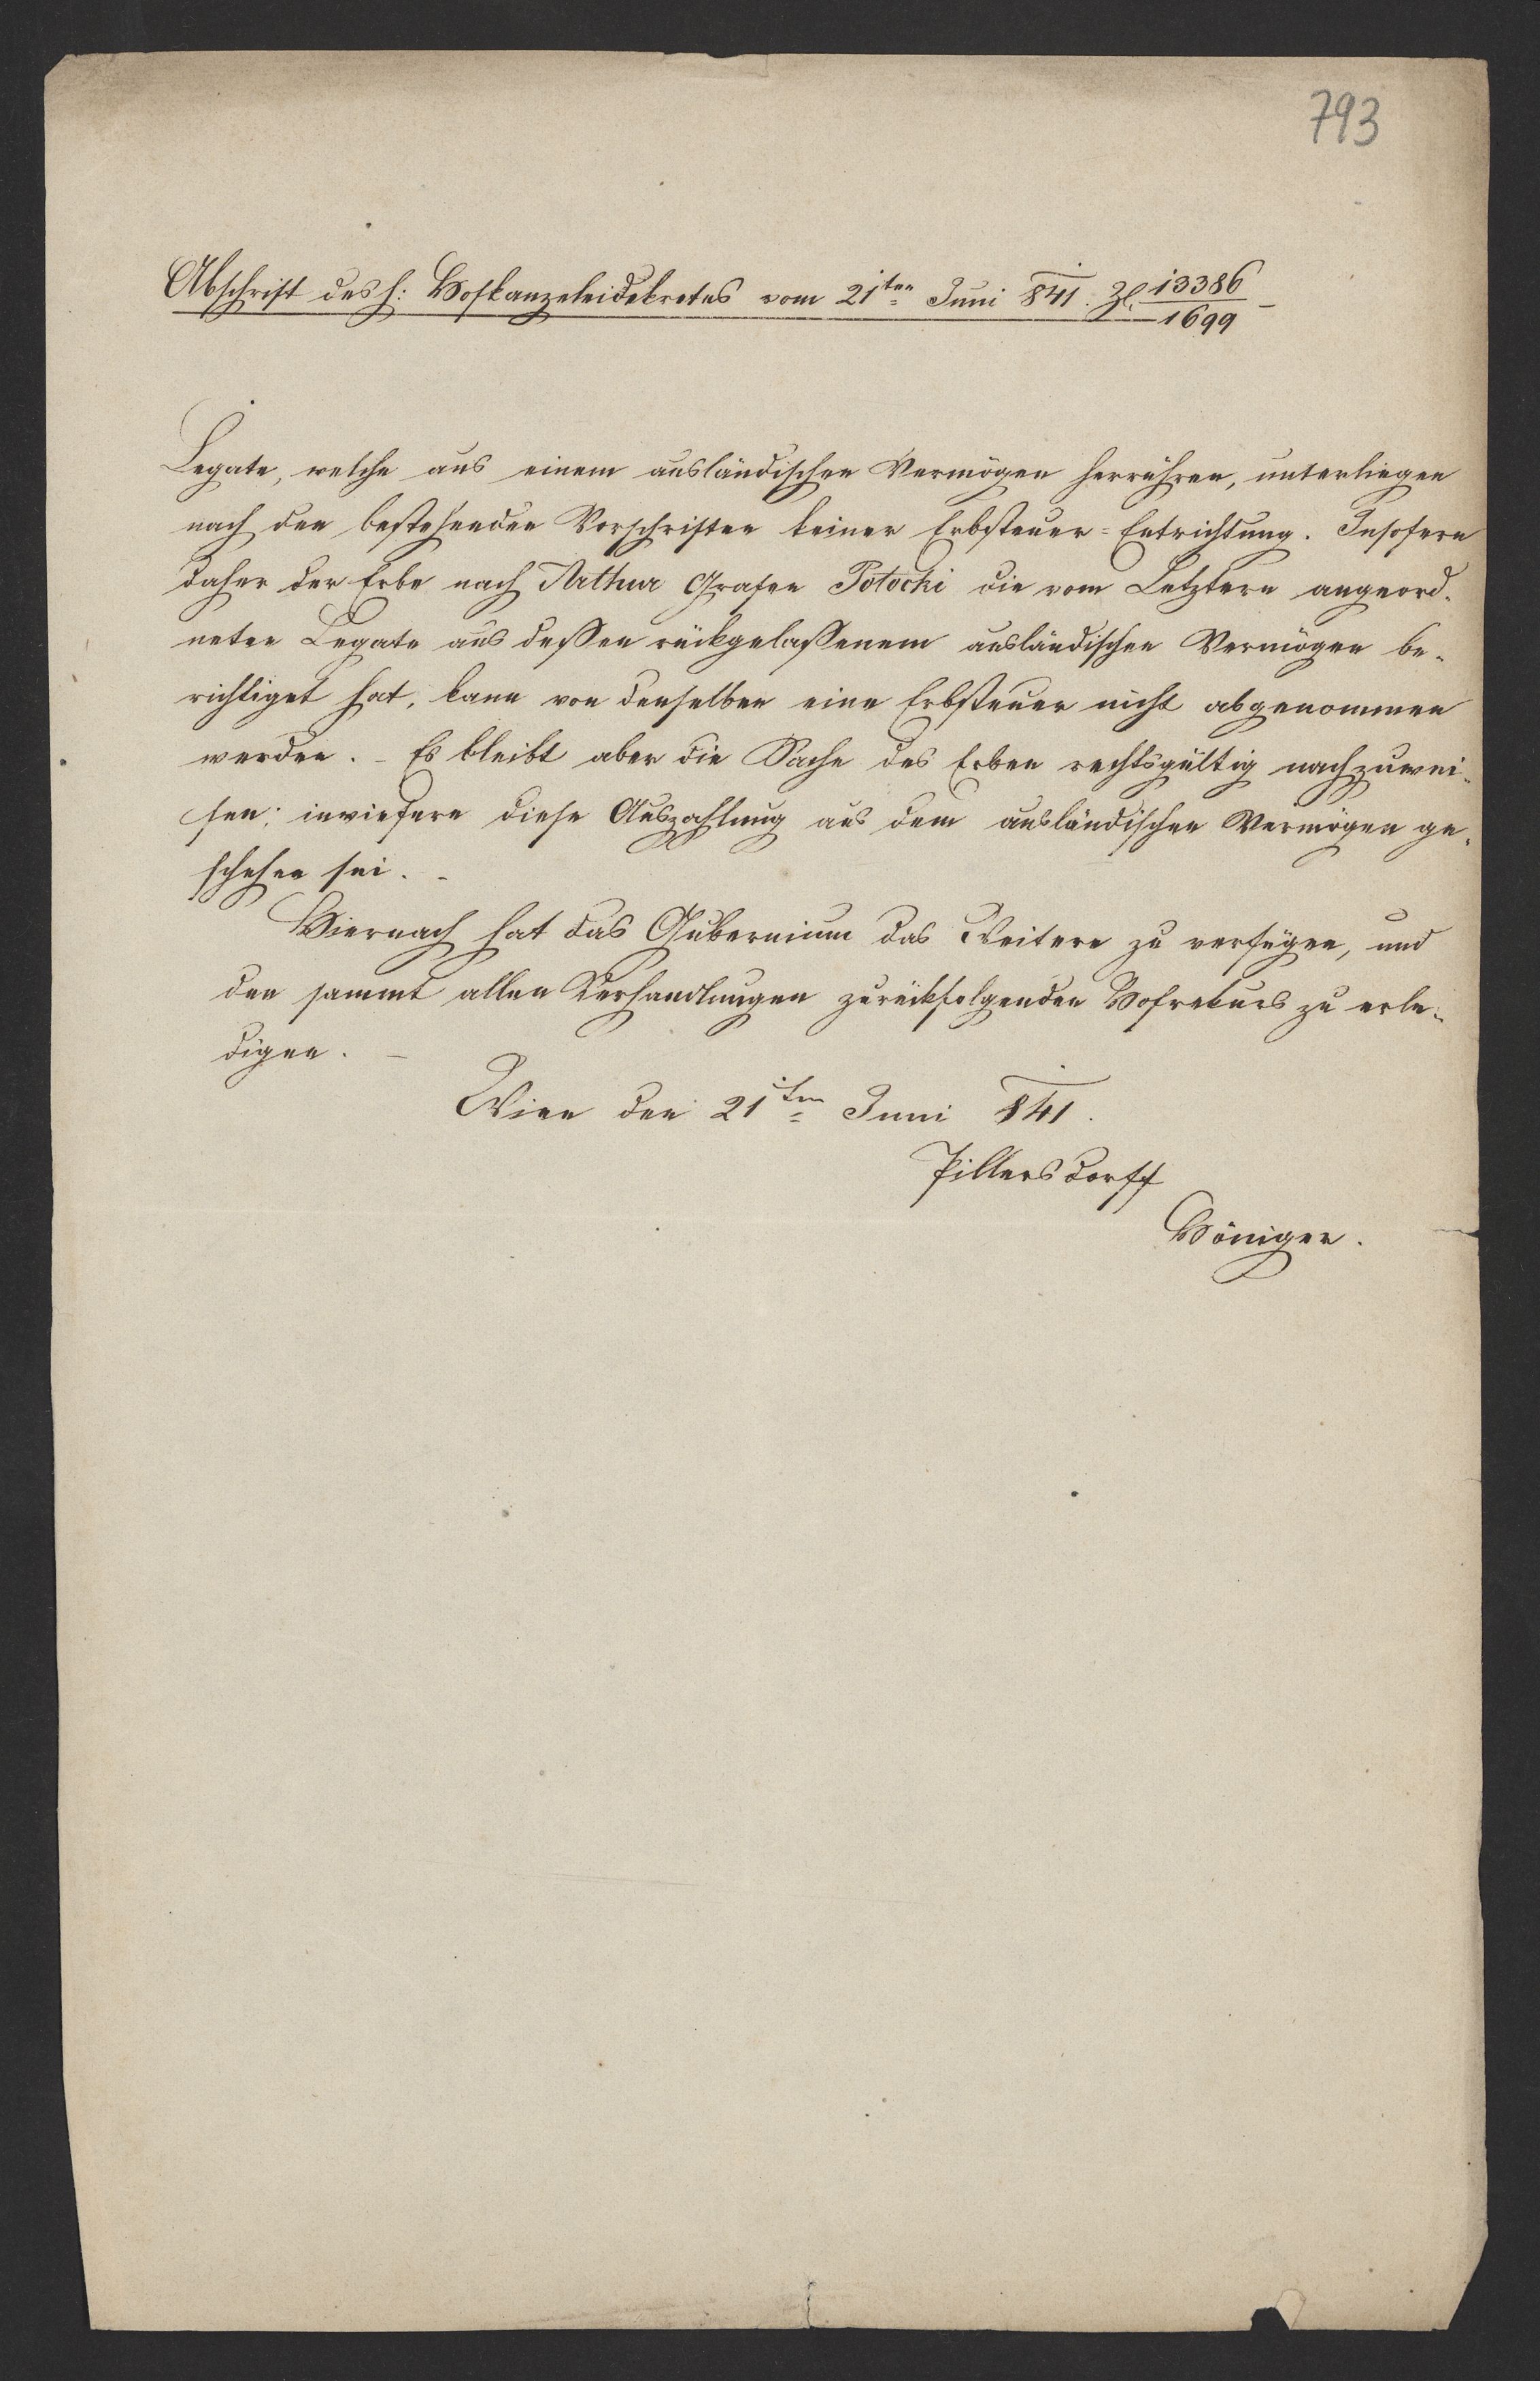 793
Abschrift des h: Hofkanzeleidekretes vom 21ten Juni 841. Zl. 13386/1699
Legate, welche aus einem ausländischen Vermögen herrühren, unterliegen
nach den bestehenden Vorschriften keiner Erbsteuer-Entrichtung. Insofern
daher der Erbe nach Arthur Grafen Potocki die vom Letztern angeord-
neten Legate aus dessen rückgelassenem ausländischen Vermögen be-
richtiget hat, kann von denselben eine Erbsteuer nicht abgenommen
werden. – Es bleibt aber die Sache des Erben rechtsgültig nachzuwei-
sen: inwiefern diese Auszahlung aus dem ausländischen Vermögen ge-
schehen sei. –
Hiernach hat das Gubernium das Weitere zu verfügen, und
den sammt allen Verhandlungen zurückfolgenden Hofrekurs zu erle-
digen. –
Wien den 21ten Juni 841.
Pillersdorff
Höniger.